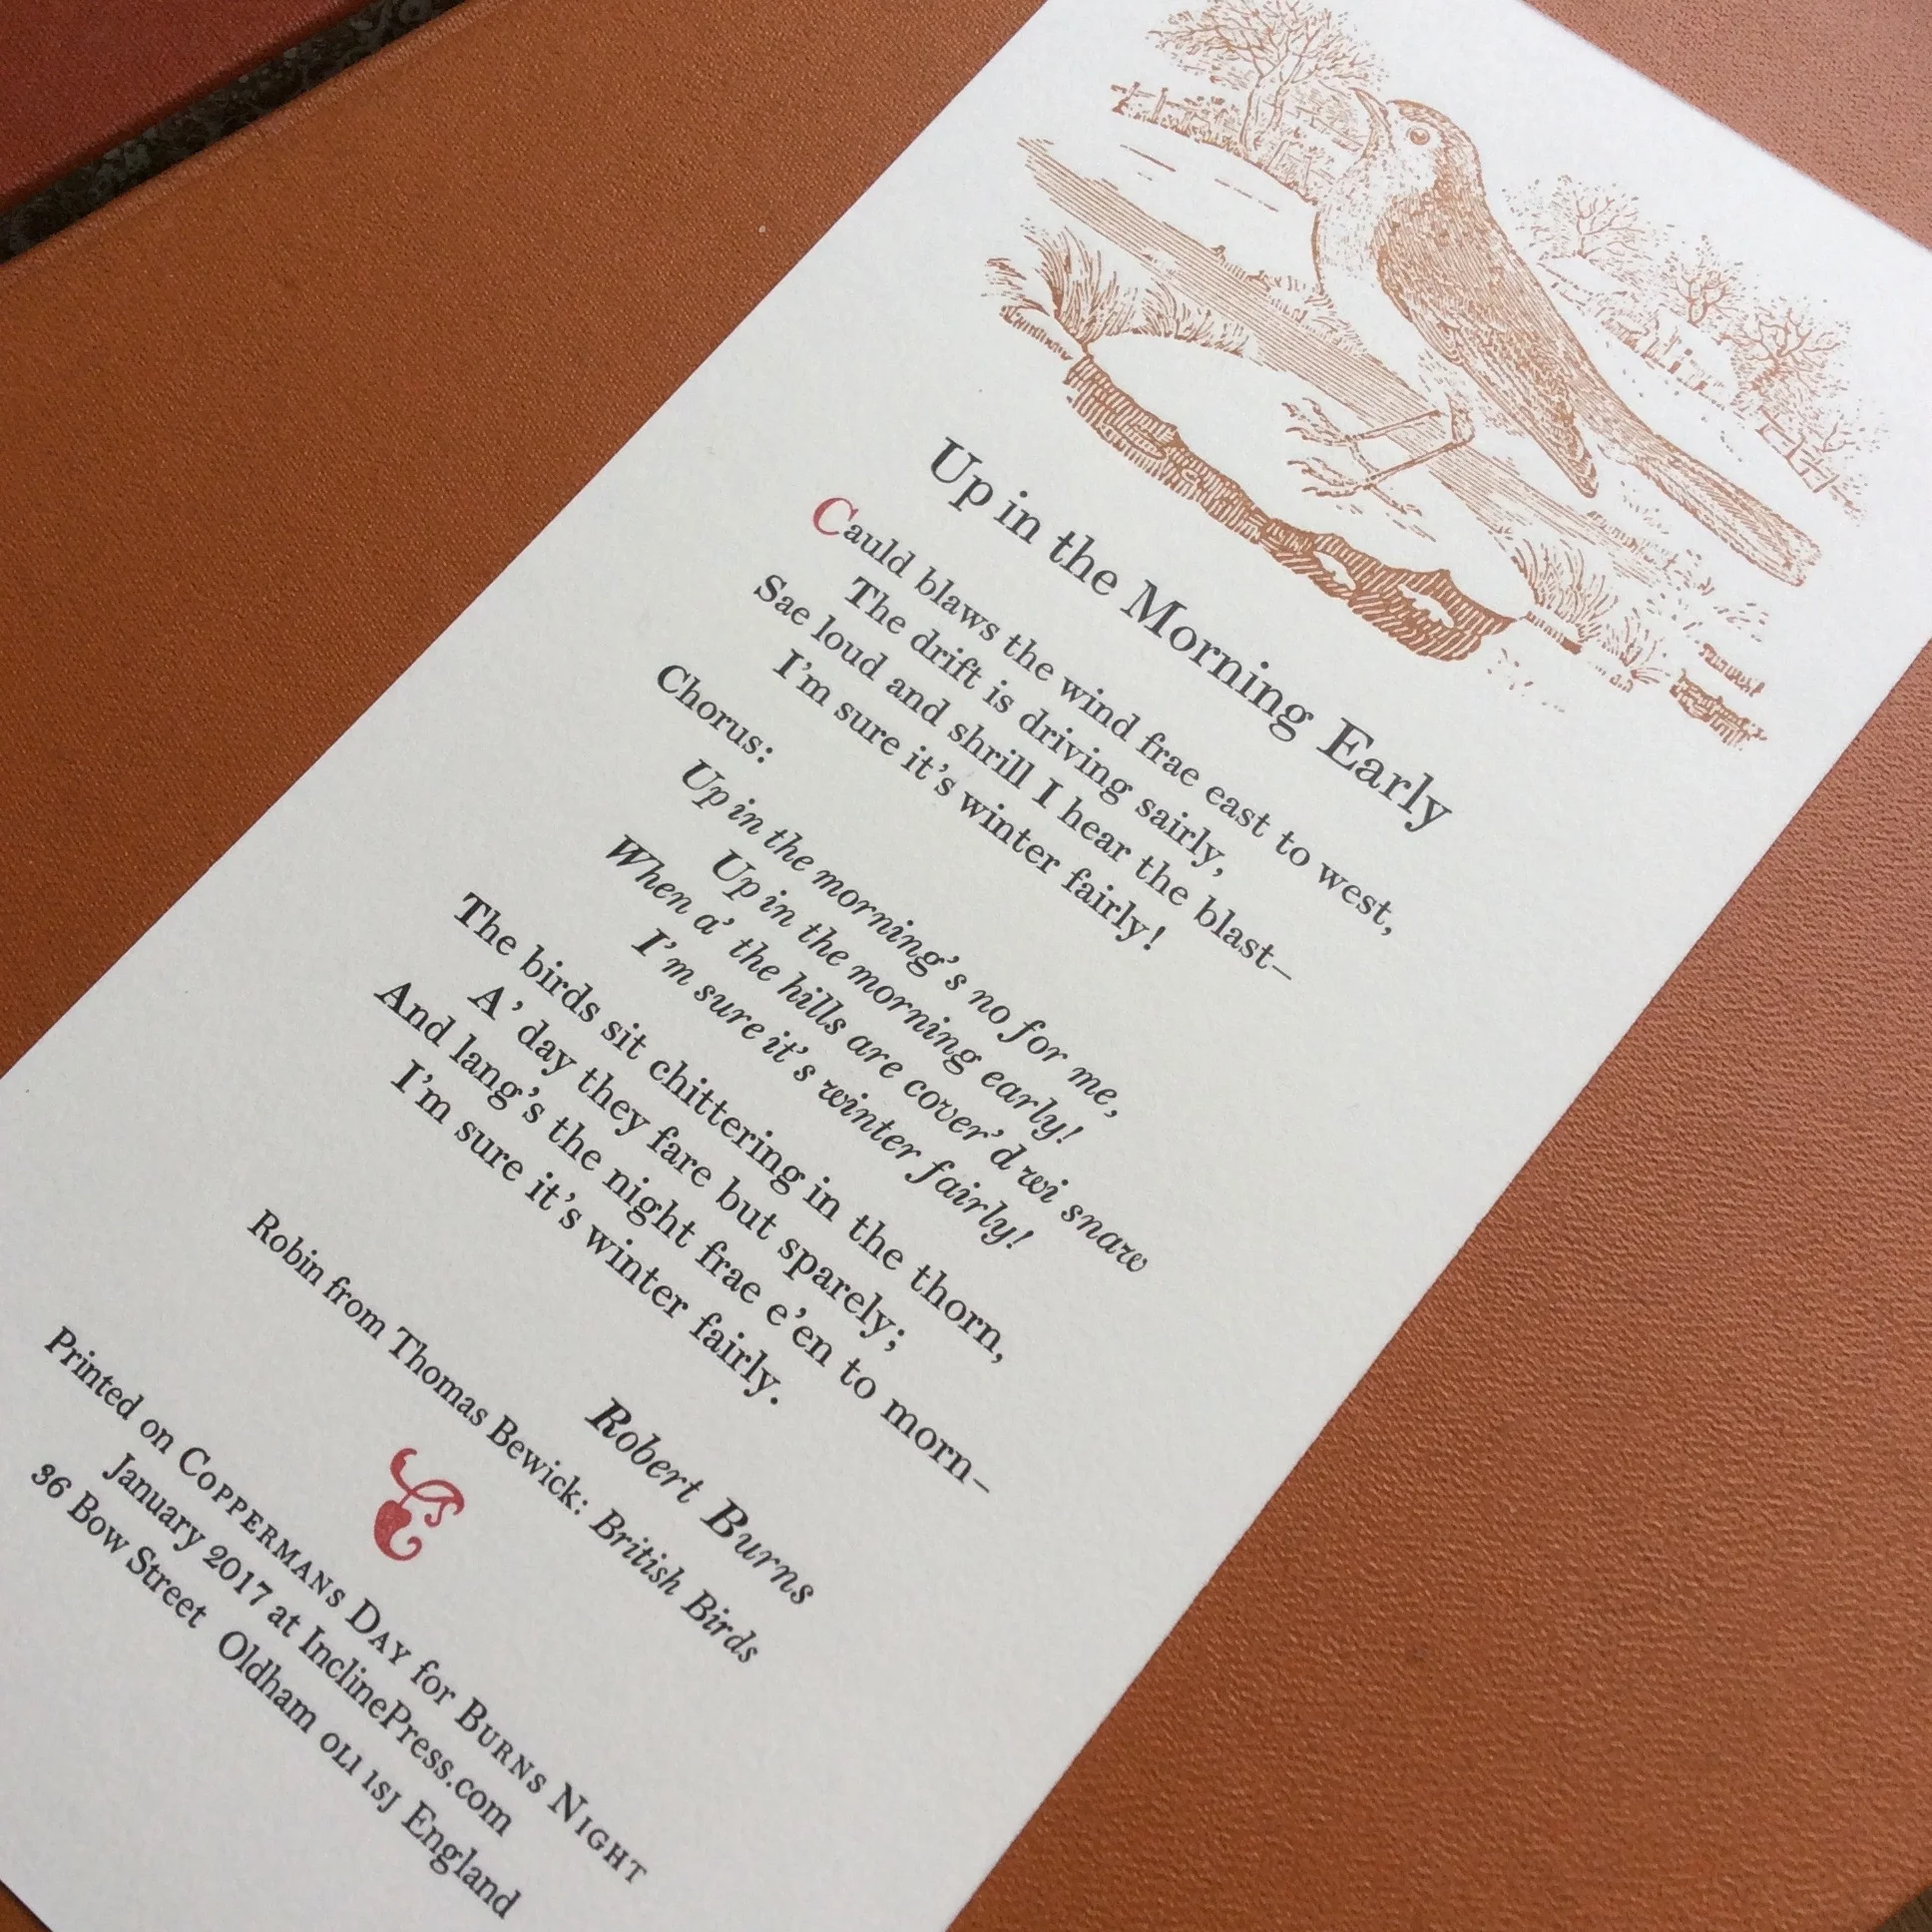 Up in the Morning Early
Cauld blaws the wind frae east to west,
The drift is driving sairly,
Sae loud and shrill I hear the blast–
I'm sure it's winter fairly!
Chorus:
Up in the morning's no for me,
Up in the morning early!
When a' the hills are cover'd wi snaw
I'm sure it's winter fairly!
The birds sit chittering in the thorn,
A' day they fare but sparely;
And lang's the night frae e'en to morn–
I'm sure it's winter fairly.
Robert Burns
Robin from Thomas Bewick: British Birds
Printed on COPPERMANS DAY for BURNS NIGHT
January 2017 at InclinePress.com
36 Bow Street Oldham OL1 1SJ England